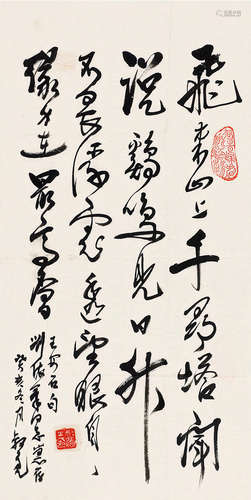 飛來山上千尋塔聞
說鷄鳴見日升
不畏浮雲遮望眼自
緣身在最高層
王安石句
同志惠存
癸亥冬月